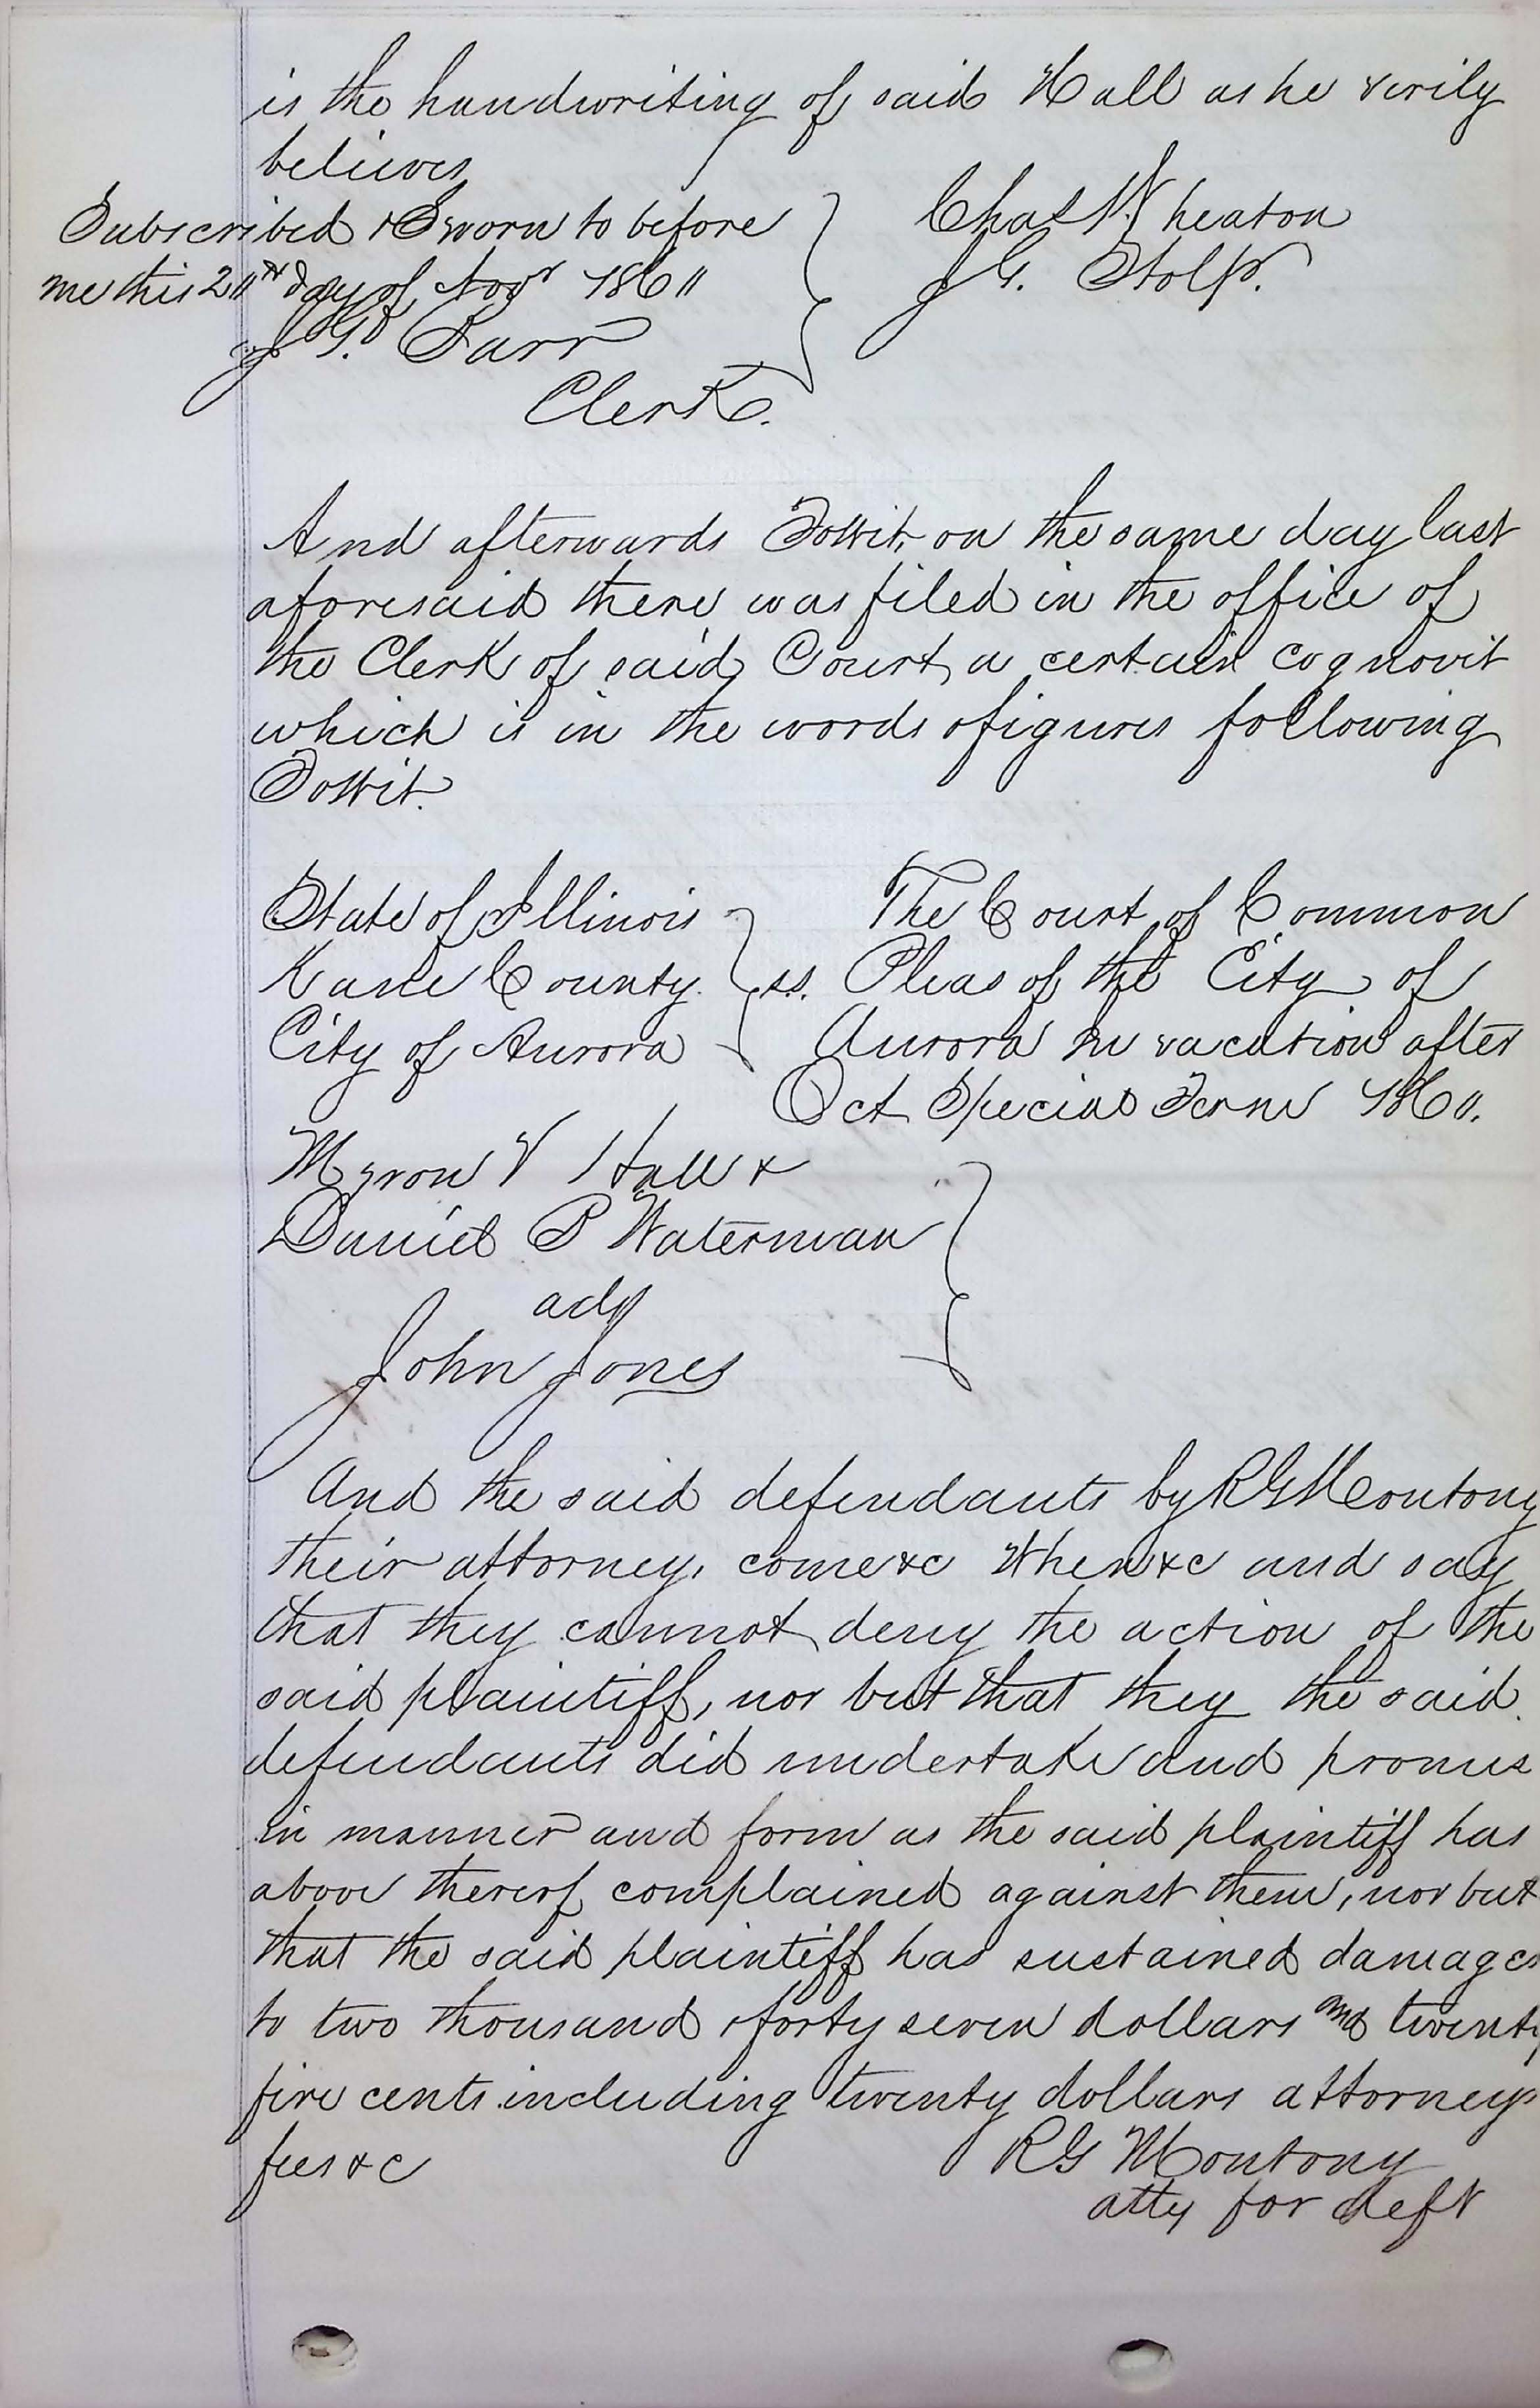 is the handwriting of said Hall as he verily
believes
Subscribed & Sworn to before
me this 2 day of Novr 186
J. G. Barr
Clerk.
Chas Wheaton
J. G. Stolp.
And afterwards Towit, on the same day last
aforesaid there was filed in the office of
the Clerk of said Court, a certain cognovit
which is in the words & figures following
Towit.
State of Illinois
Kane County. ss.
City of Aurora
The Court of Common
Pleas of the City of
Aurora In vacation after
Oct Special Term 186
Myron V Hall &
Daniel B Waterman
ads
John Jones
And the said defendants by R G Montony
their attorney, come &c when &c and say
that they cannot deny the action of the
said plaintiff, nor but that they the said
defendants did undertake and promise
in manner and form as the said plaintiff has
above thereof complained against them, nor but
that the said plaintiff has sustained damages
to two thousand & forty seven dollars and twenty
five cents including twenty dollars attorneys
fees &c
R G Montony
atty for deft